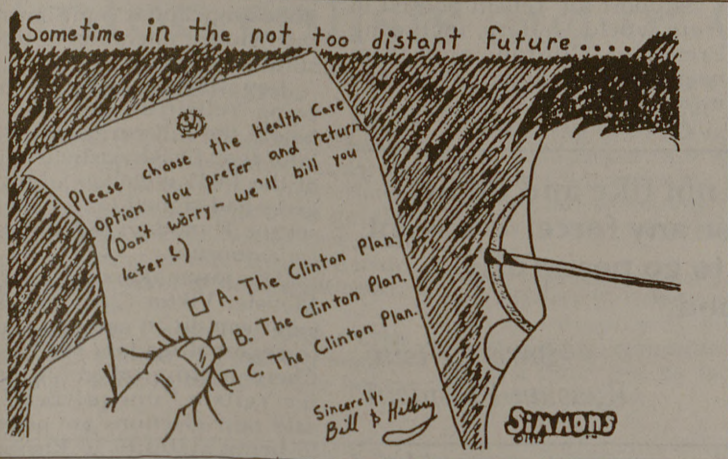 Sometime in the not too distant future....
Please choose the Health Care
option you prefer and return
(Don't worry - we'll bill you
later!)
A. The Clinton Plan.
B. The Clinton Plan.
C. The Clinton Plan.
Sincerely,
Bill & Hillary
SIMMONS